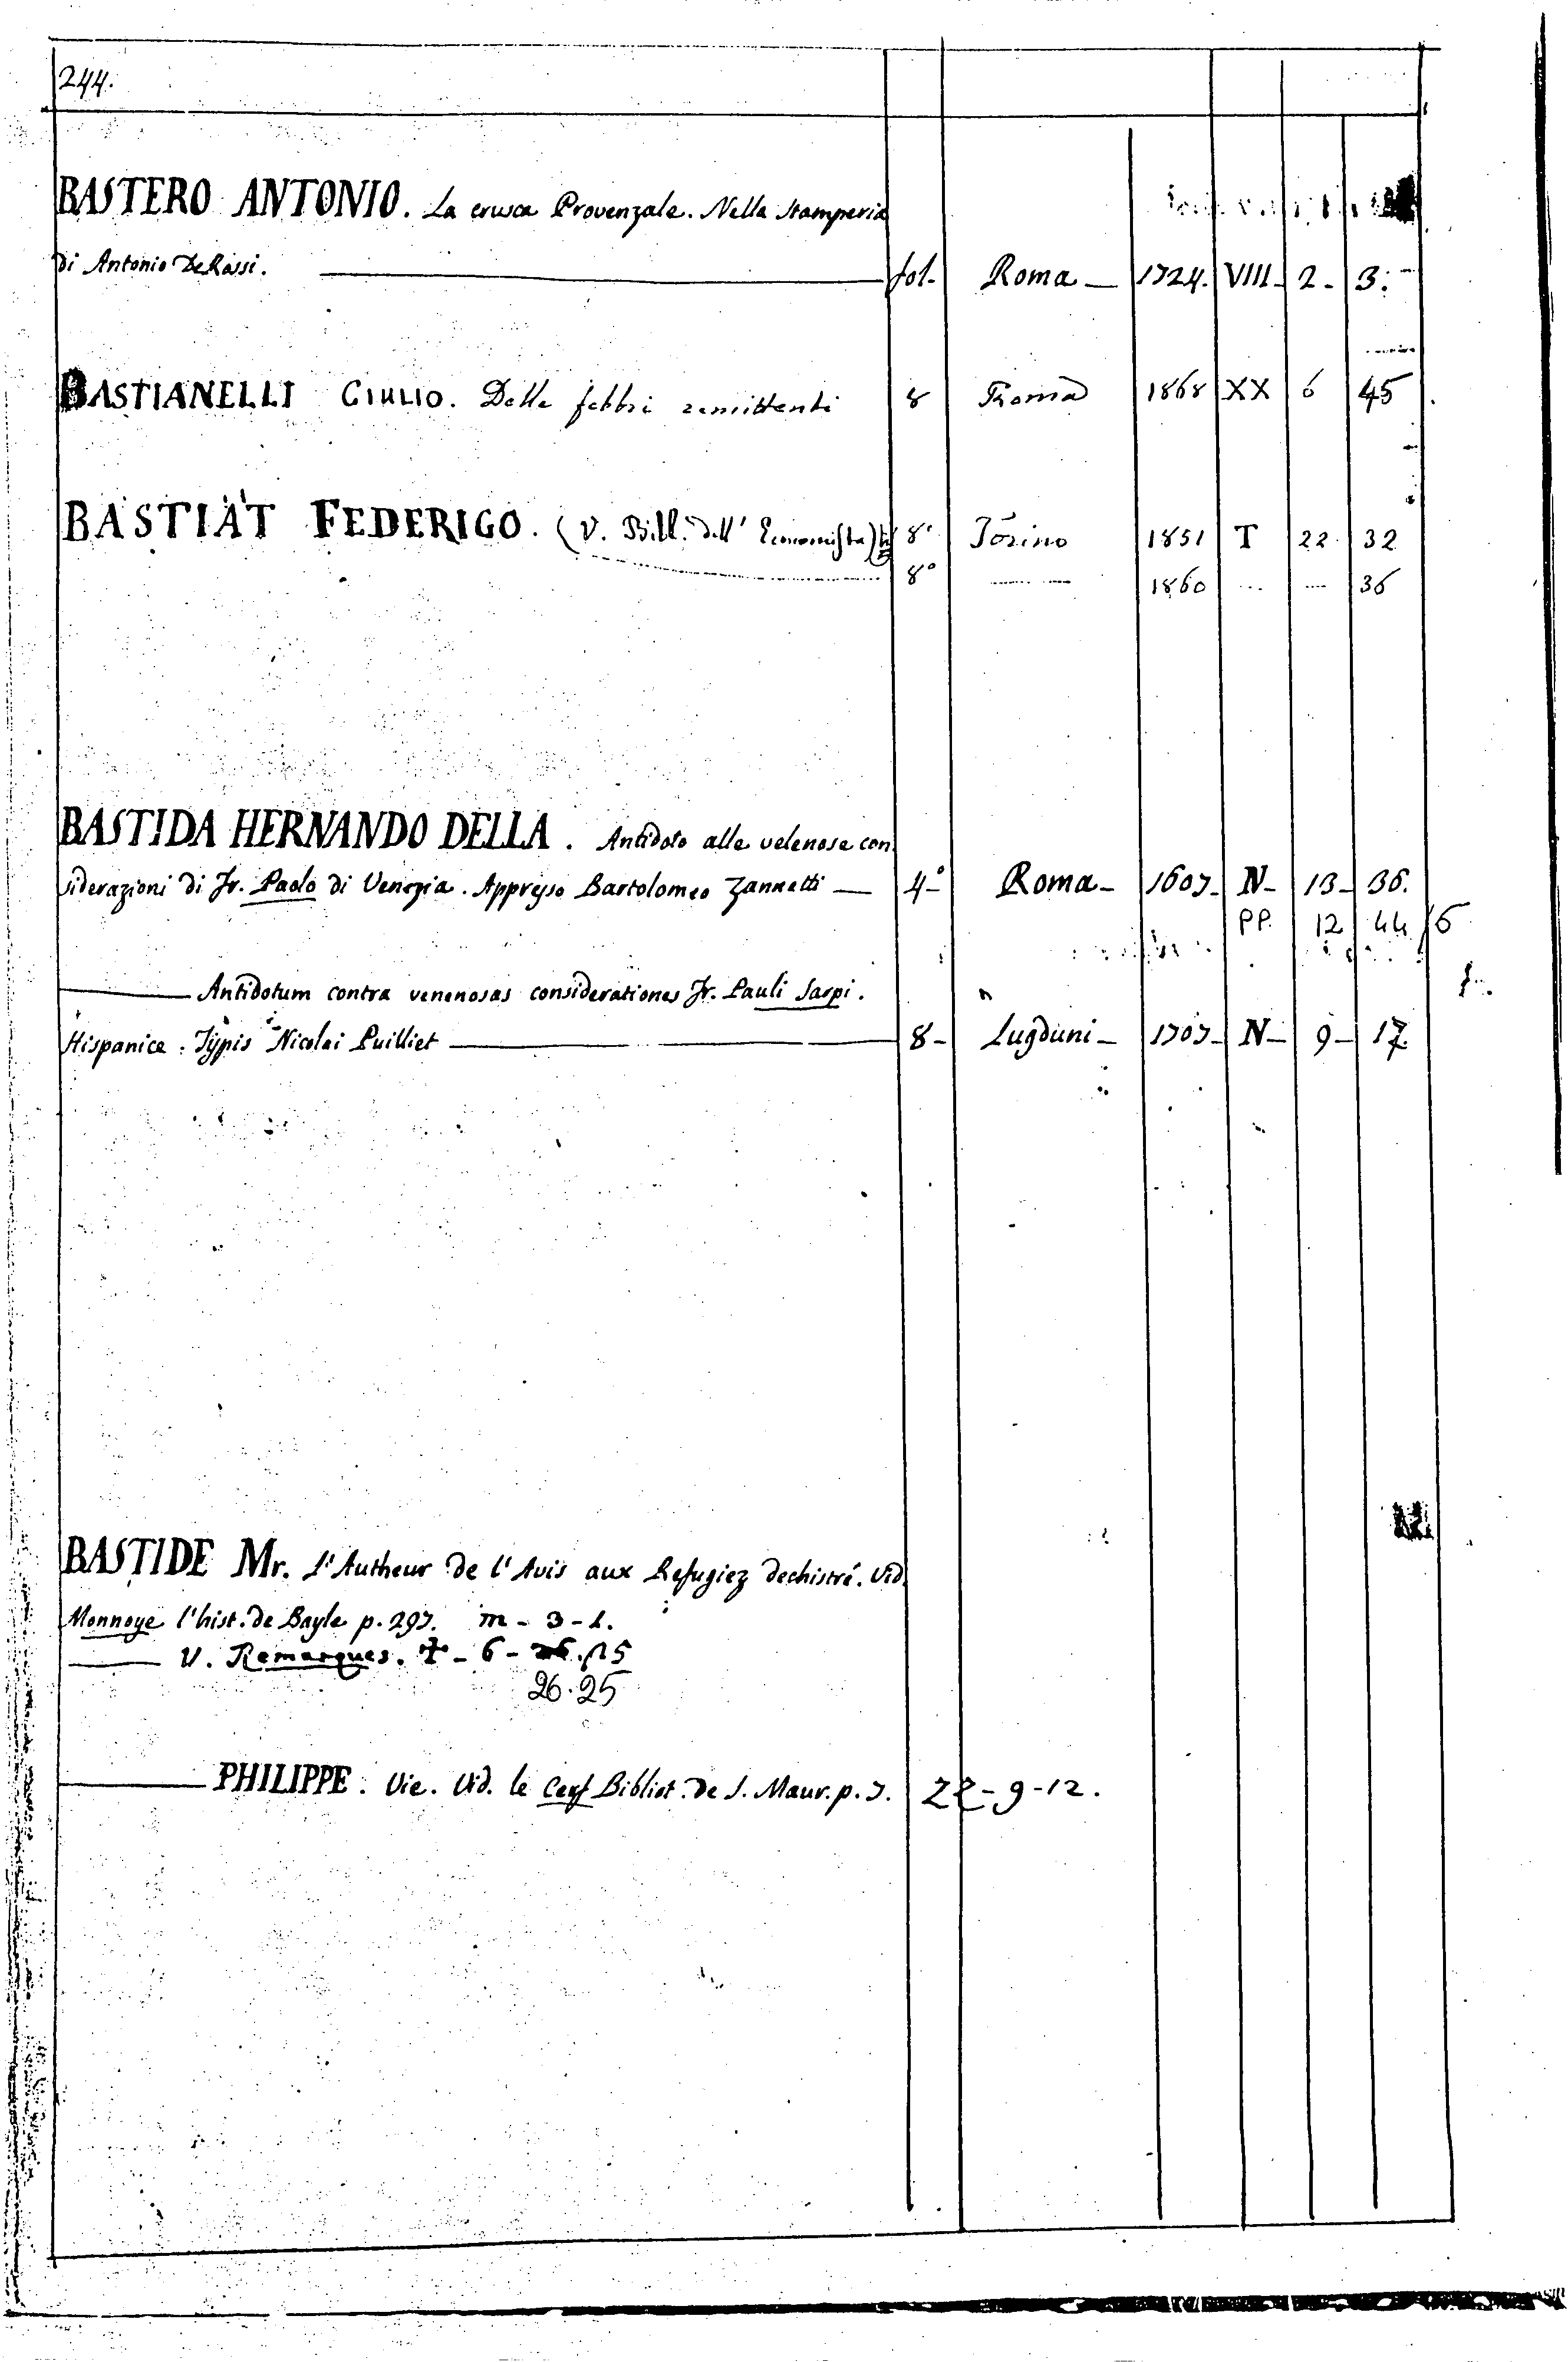 244.
BASTERO ANTONIO. La crusca Provenzale. Nella Stamperia
di Antonio De Rossi. fol. Roma 1724. VIII 2 3.
BASTIANELLI GIULIO. Delle febbri remittenti 8 Roma 1868 XX 6 45
BASTIAT FEDERIGO. (V. Bibl. dell' Economista) 8° Torino 1851 T 22 32
8° 1860 36
BASTIDA HERNANDO DELLA. Antidoto alle velenose con
siderazioni di Fr. Paolo di Venezia. Appresso Bartolomeo Zannetti 4° Roma 1607 N 13 36.
PP. 12 44 /6
Antidotum contra venenosas considerationes Fr. Pauli Sarpi.
Hispanice. Typis Nicolai Puilliet 8 Lugduni 1707 N 9 17.
BASTIDE Mr. L'Autheur de l'Avis aux Refugiez dechistré. Vid.
Monnoye l'hist. de Bayle p. 297. m - 3 - 1.
V. Remarques. - 6 -
26.25
PHILIPPE. Vie. Vid. le Cerf Bibliot. de S. Maur. p. 7. ZZ - 9 - 12.